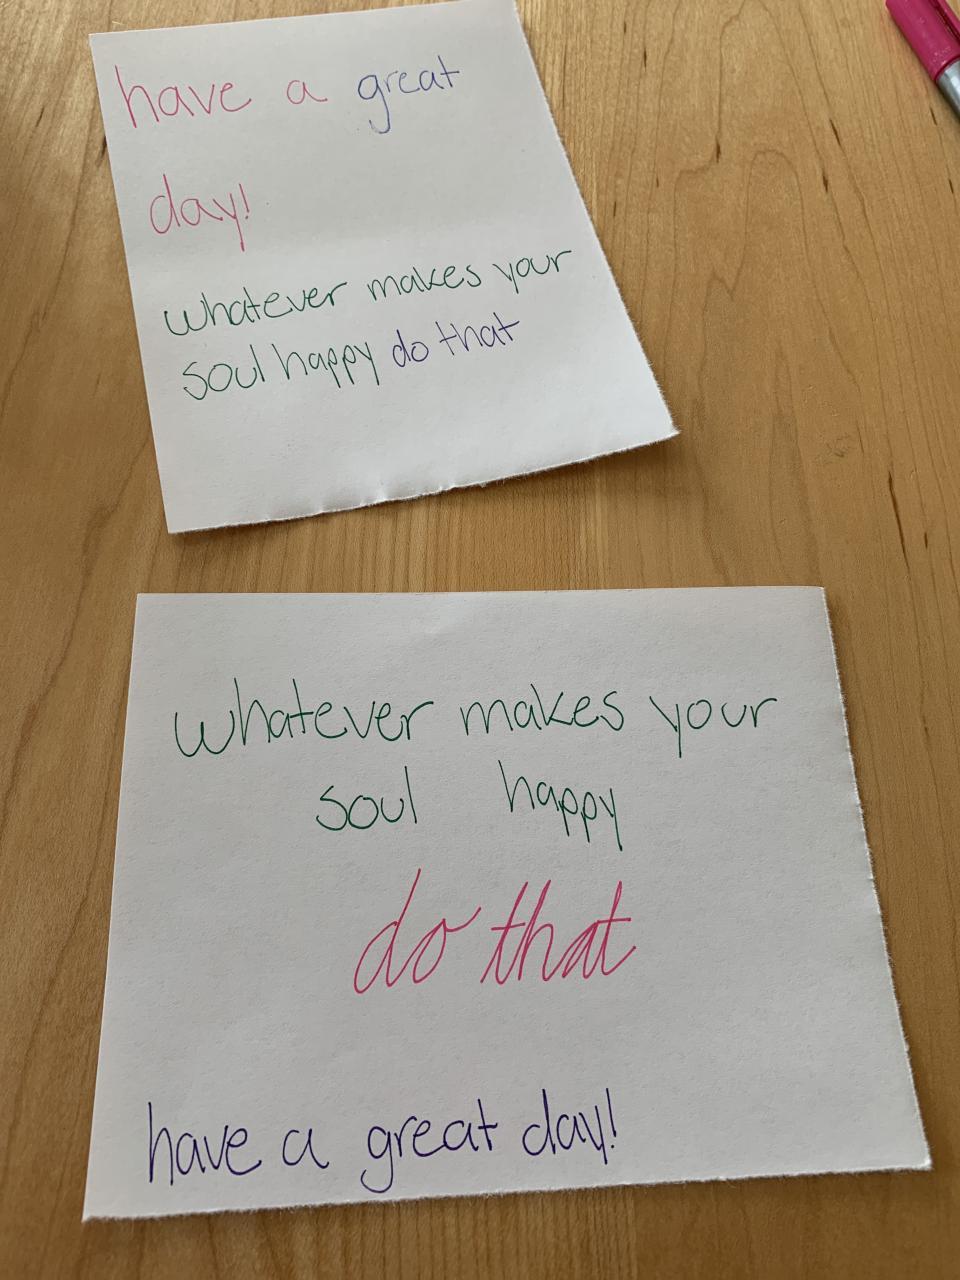 have a great
day!
whatever makes your
soul happy do that
whatever makes your
soul happy
do that
have a great day!